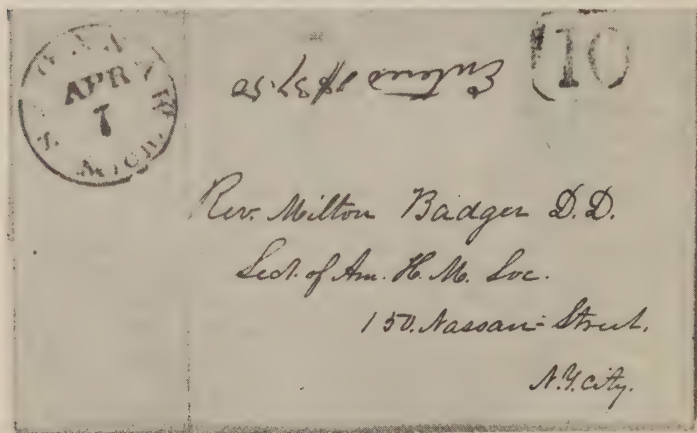 APR
7
MICH.
10
$37.50
Rev. Milton Badger D.D.
Sect. of Am. H. M. Soc.
150. Nassau-Street.
N.Y. City.